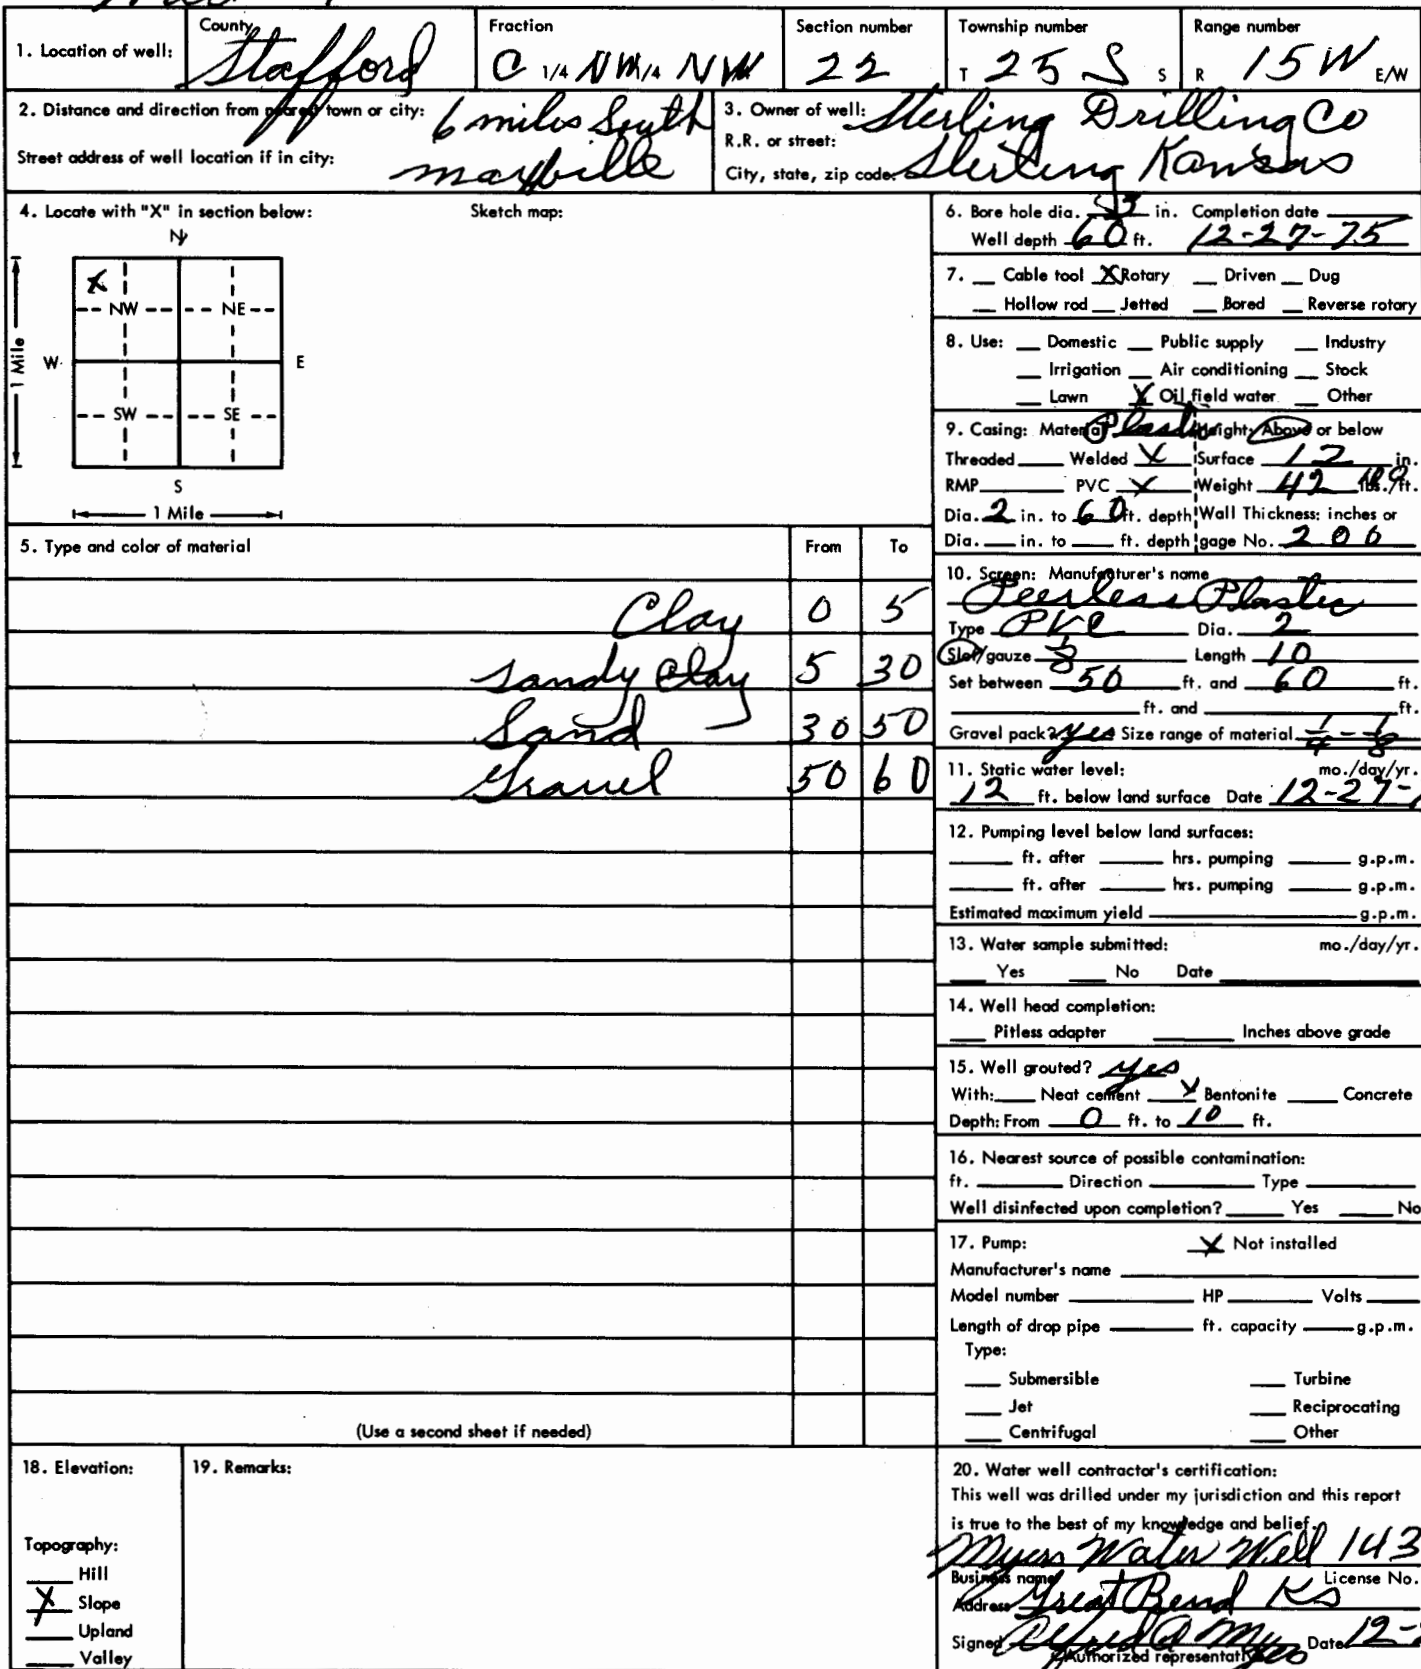 1. Location of well: County Stafford Fraction C 1/4 NW 1/4 NW Section number 22 Township number T 25 S S Range number R 15 W E/W
2. Distance and direction from nearest town or city: 6 miles South
Street address of well location if in city: maxville
3. Owner of well: Sterling Drilling Co
R.R. or street:
City, state, zip code: Sterling Kansas
4. Locate with "X" in section below: Sketch map:
N
X
NW NE
W E
1 Mile
SW SE
S
1 Mile
5. Type and color of material From To
Clay 0 5
Sandy Clay 5 30
Sand 30 50
Gravel 50 60
(Use a second sheet if needed)
6. Bore hole dia. in. Completion date
Well depth 60 ft. 12-27-75
7. Cable tool X Rotary Driven Dug
Hollow rod Jetted Bored Reverse rotary
8. Use: Domestic Public supply Industry
Irrigation Air conditioning Stock
Lawn X Oil field water Other
9. Casing: Material Plastic Height: Above or below
Threaded Welded X Surface 12 in.
RMP PVC X Weight 42 lbs./ft.
Dia. 2 in. to 60 ft. depth Wall Thickness: inches or
Dia. in. to ft. depth gage No. 200
10. Screen: Manufacturer's name
Peerless Plastic
Type PVC Dia. 2
Slot/gauze 1/8 Length 10
Set between 50 ft. and 60 ft.
ft. and ft.
Gravel pack? yes Size range of material 1/4 - 1/8
11. Static water level: mo./day/yr.
12 ft. below land surface Date 12-27-
12. Pumping level below land surfaces:
ft. after hrs. pumping g.p.m.
ft. after hrs. pumping g.p.m.
Estimated maximum yield g.p.m.
13. Water sample submitted: mo./day/yr.
Yes No Date
14. Well head completion:
Pitless adapter Inches above grade
15. Well grouted? yes
With: Neat cement X Bentonite Concrete
Depth: From 0 ft. to 10 ft.
16. Nearest source of possible contamination:
ft. Direction Type
Well disinfected upon completion? Yes No
17. Pump: X Not installed
Manufacturer's name
Model number HP Volts
Length of drop pipe ft. capacity g.p.m.
Type:
Submersible Turbine
Jet Reciprocating
Centrifugal Other
18. Elevation:
Topography:
Hill
X Slope
Upland
Valley
19. Remarks:
20. Water well contractor's certification:
This well was drilled under my jurisdiction and this report
is true to the best of my knowledge and belief.
Myers Water Well 143
Business name License No.
Address Great Bend Ks
Signed Date 12-
Authorized representative